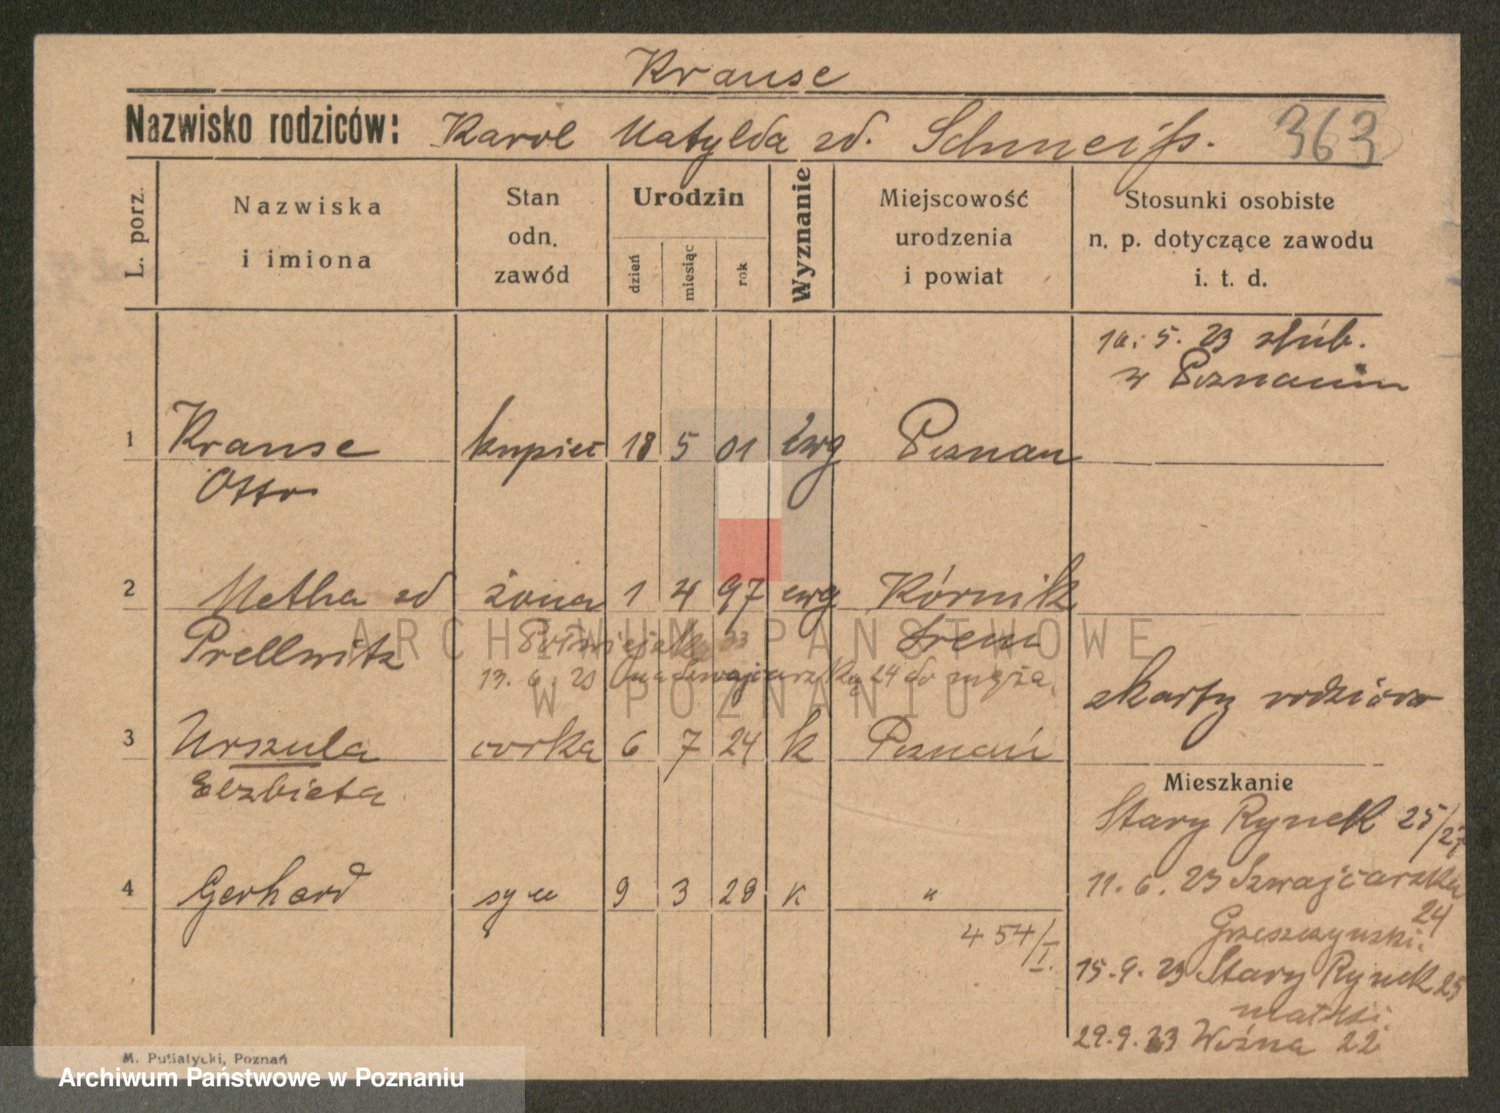 Krause
Nazwisko rodziców: Karol Matylda zd. Schmeiss. 363
L. porz.
Nazwiska
i imiona
Stan
odn.
zawód
Urodzin
dzień
miesiąc
rok
Wyznanie
Miejscowość
urodzenia
i powiat
Stosunki osobiste
n. p. dotyczące zawodu
i. t. d.
5. 23 ślub.
w Poznaniu
1 Krause kupiec 18 5 01 Ewg Poznan
Otto
2 Metha zd żona 1 4 97 ewg Kórnik
Prellwitz Śrem
13. 6. 23 24 do męża
zkarty rodziców
3 Urszula corka 6 7 24 k Poznań
Elzbieta
Mieszkanie
Stary Rynek 25/27
4 Gerhard syn 9 3 28 k "
11. 6. 23 Szwajcarska
24
Grzeszczynski.
454/I.
15. 9. 23 Stary Rynek 25
matki.
29. 9. 23 Woźna 22
M. Putiatycki, Poznań
ARCHIWUM PAŃSTWOWE
W POZNANIU
Archiwum Państwowe w Poznaniu